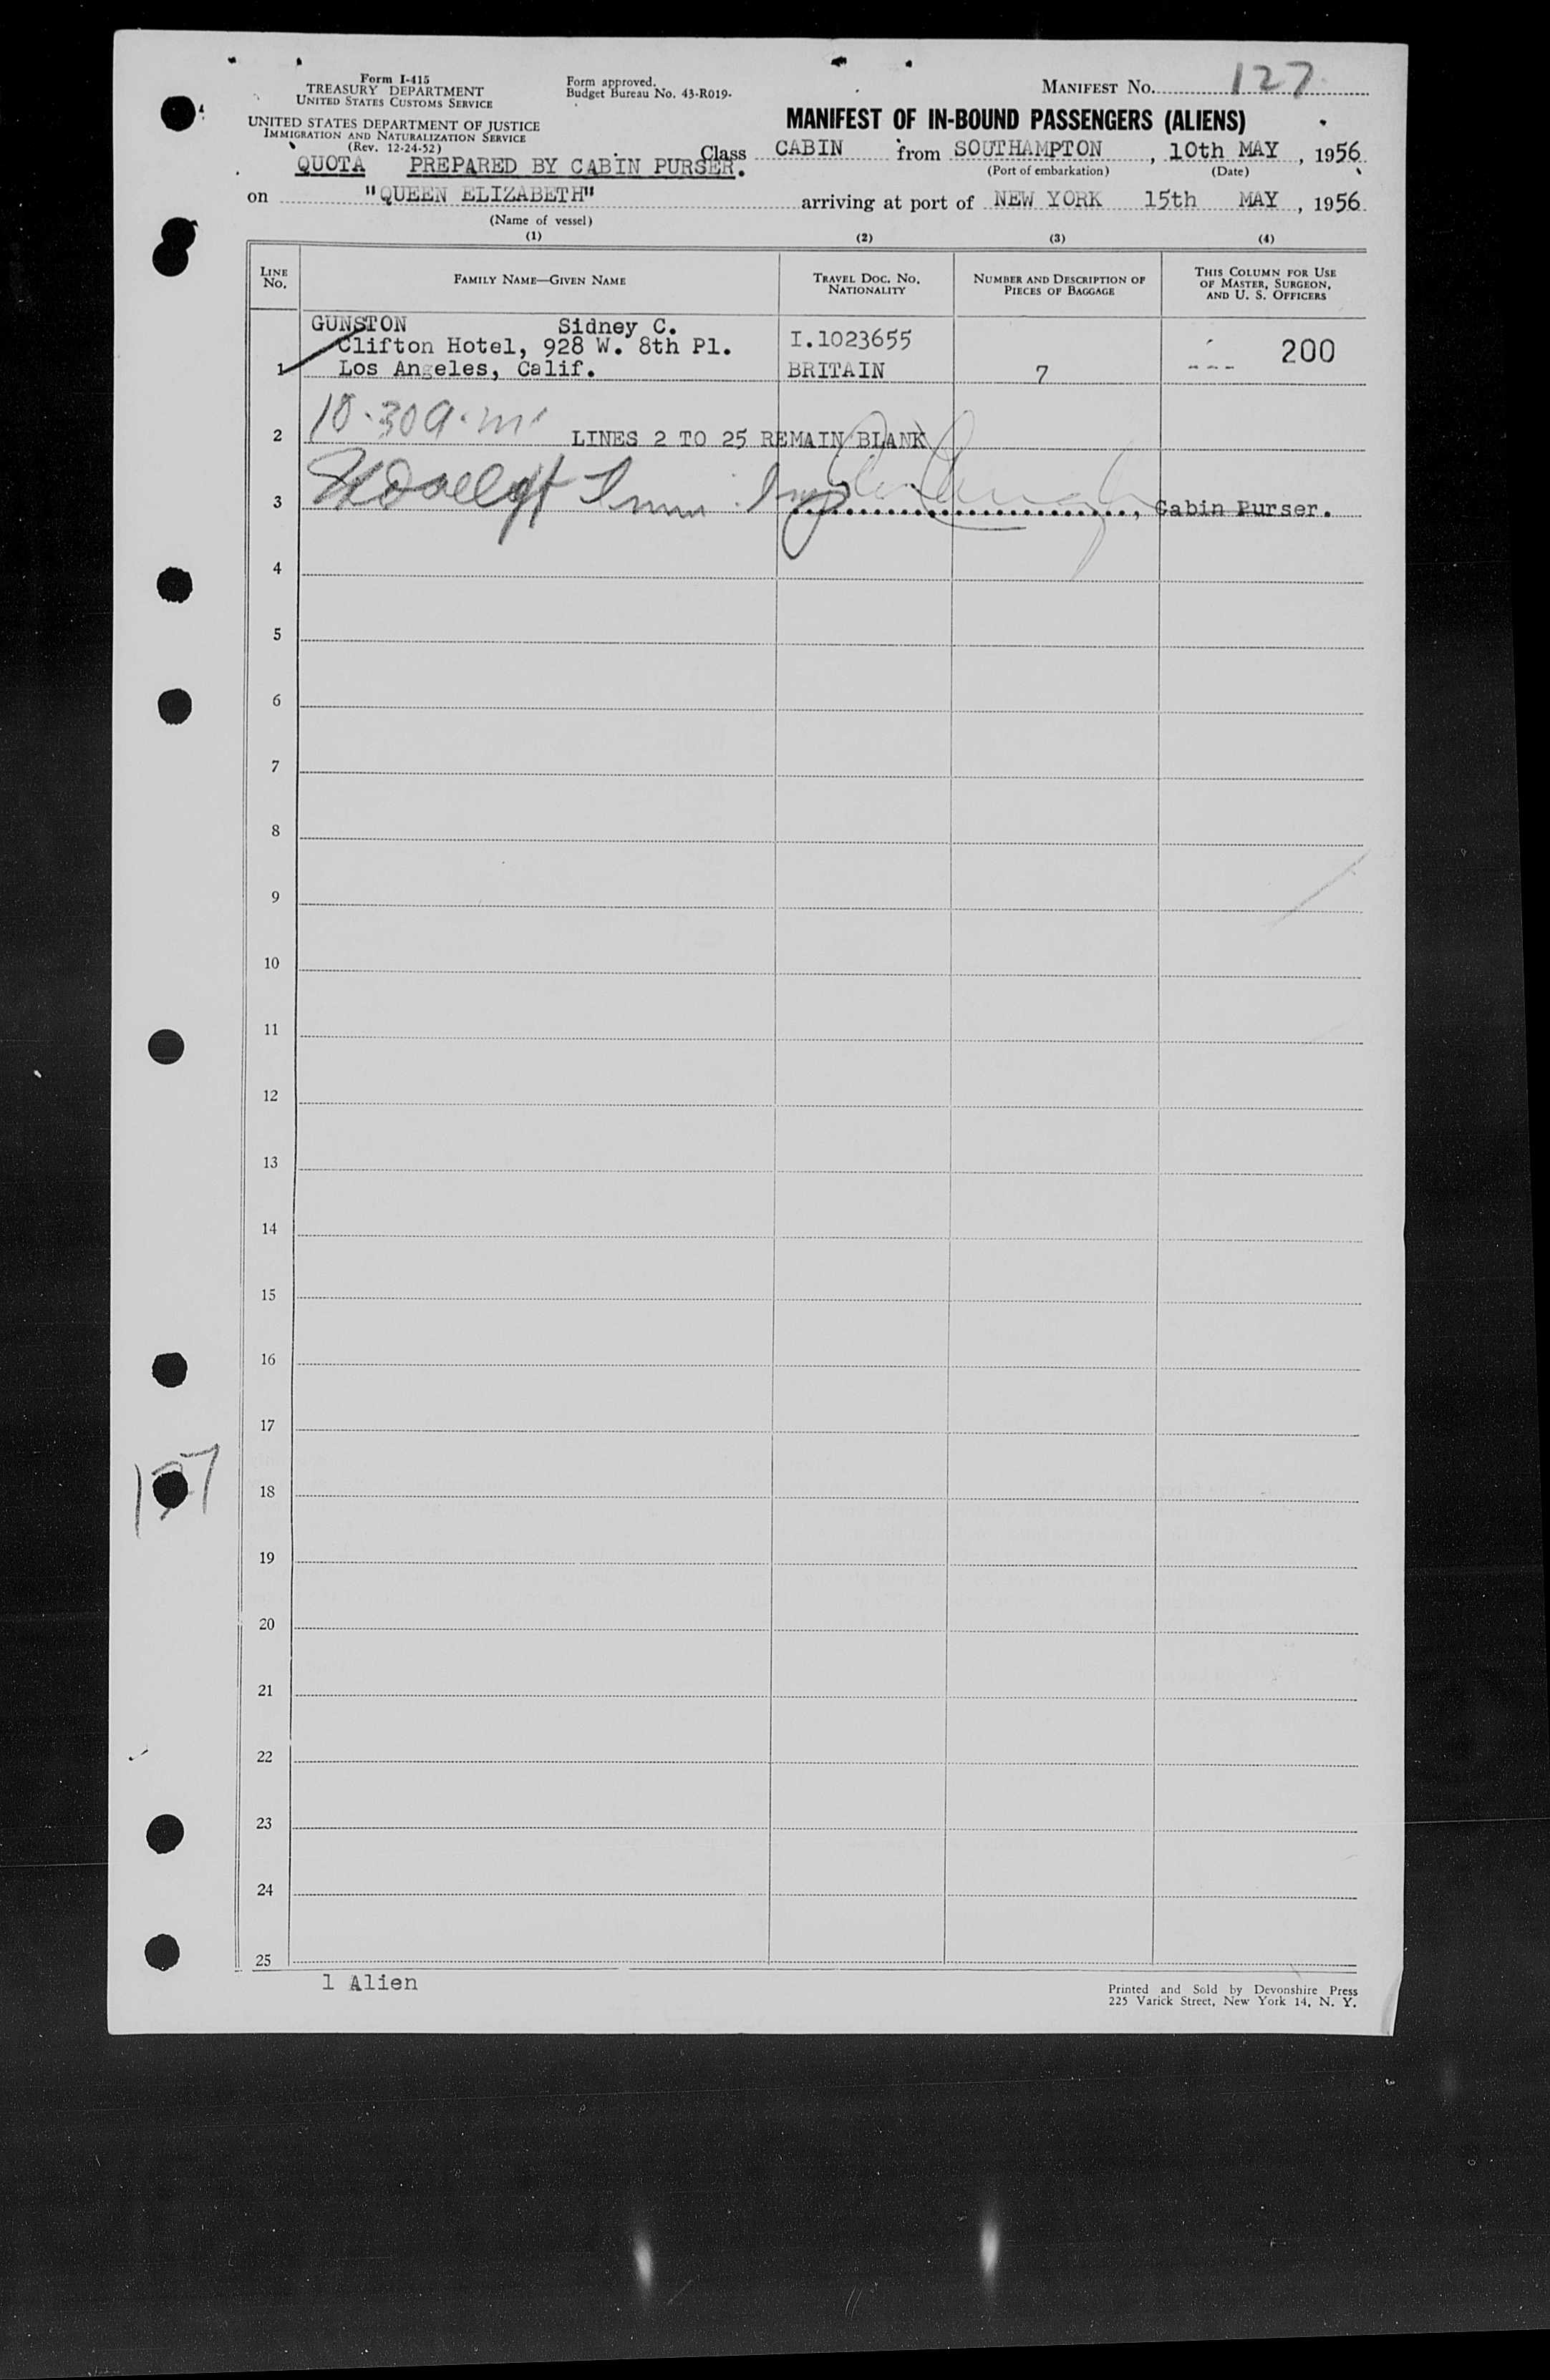 Form I-415
TREASURY DEPARTMENT
UNITED STATES CUSTOMS SERVICE
UNITED STATES DEPARTMENT OF JUSTICE
IMMIGRATION AND NATURALIZATION SERVICE
(Rev. 12-24-52)
Form approved.
Budget Bureau No. 43-R019-
MANIFEST NO. 127
MANIFEST OF IN-BOUND PASSENGERS (ALIENS)
QUOTA PREPARED BY CABIN PURSER.
Class CABIN from SOUTHAMPTON, 10th MAY, 1956
(Port of embarkation) (Date)
on "QUEEN ELIZABETH" arriving at port of NEW YORK 15th MAY, 1956
(Name of vessel)
(1) (2) (3) (4)
LINE NO.
FAMILY NAME—GIVEN NAME
TRAVEL DOC. NO. NATIONALITY
NUMBER AND DESCRIPTION OF PIECES OF BAGGAGE
THIS COLUMN FOR USE OF MASTER, SURGEON, AND U. S. OFFICERS
GUNSTON Sidney C.
Clifton Hotel, 928 W. 8th Pl. I.1023655 200
1 Los Angeles, Calif. BRITAIN 7 ---
10-30 a.m.
2 LINES 2 TO 25 REMAIN BLANK
3 Imm. Insp , Cabin Purser.
4
5
6
7
8
9
10
11
12
13
14
15
16
17
127
18
19
20
21
22
23
24
25
1 Alien
Printed and Sold by Devonshire Press
225 Varick Street, New York 14, N. Y.